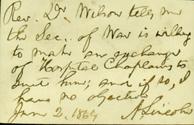 Rev. Dr. Wilson tells me
the Sec. of War is willing
to make an exchange
of Hospital Chaplains to
suit him; and if so, I
have no objection
A. Lincoln
Jan. 2. 1864